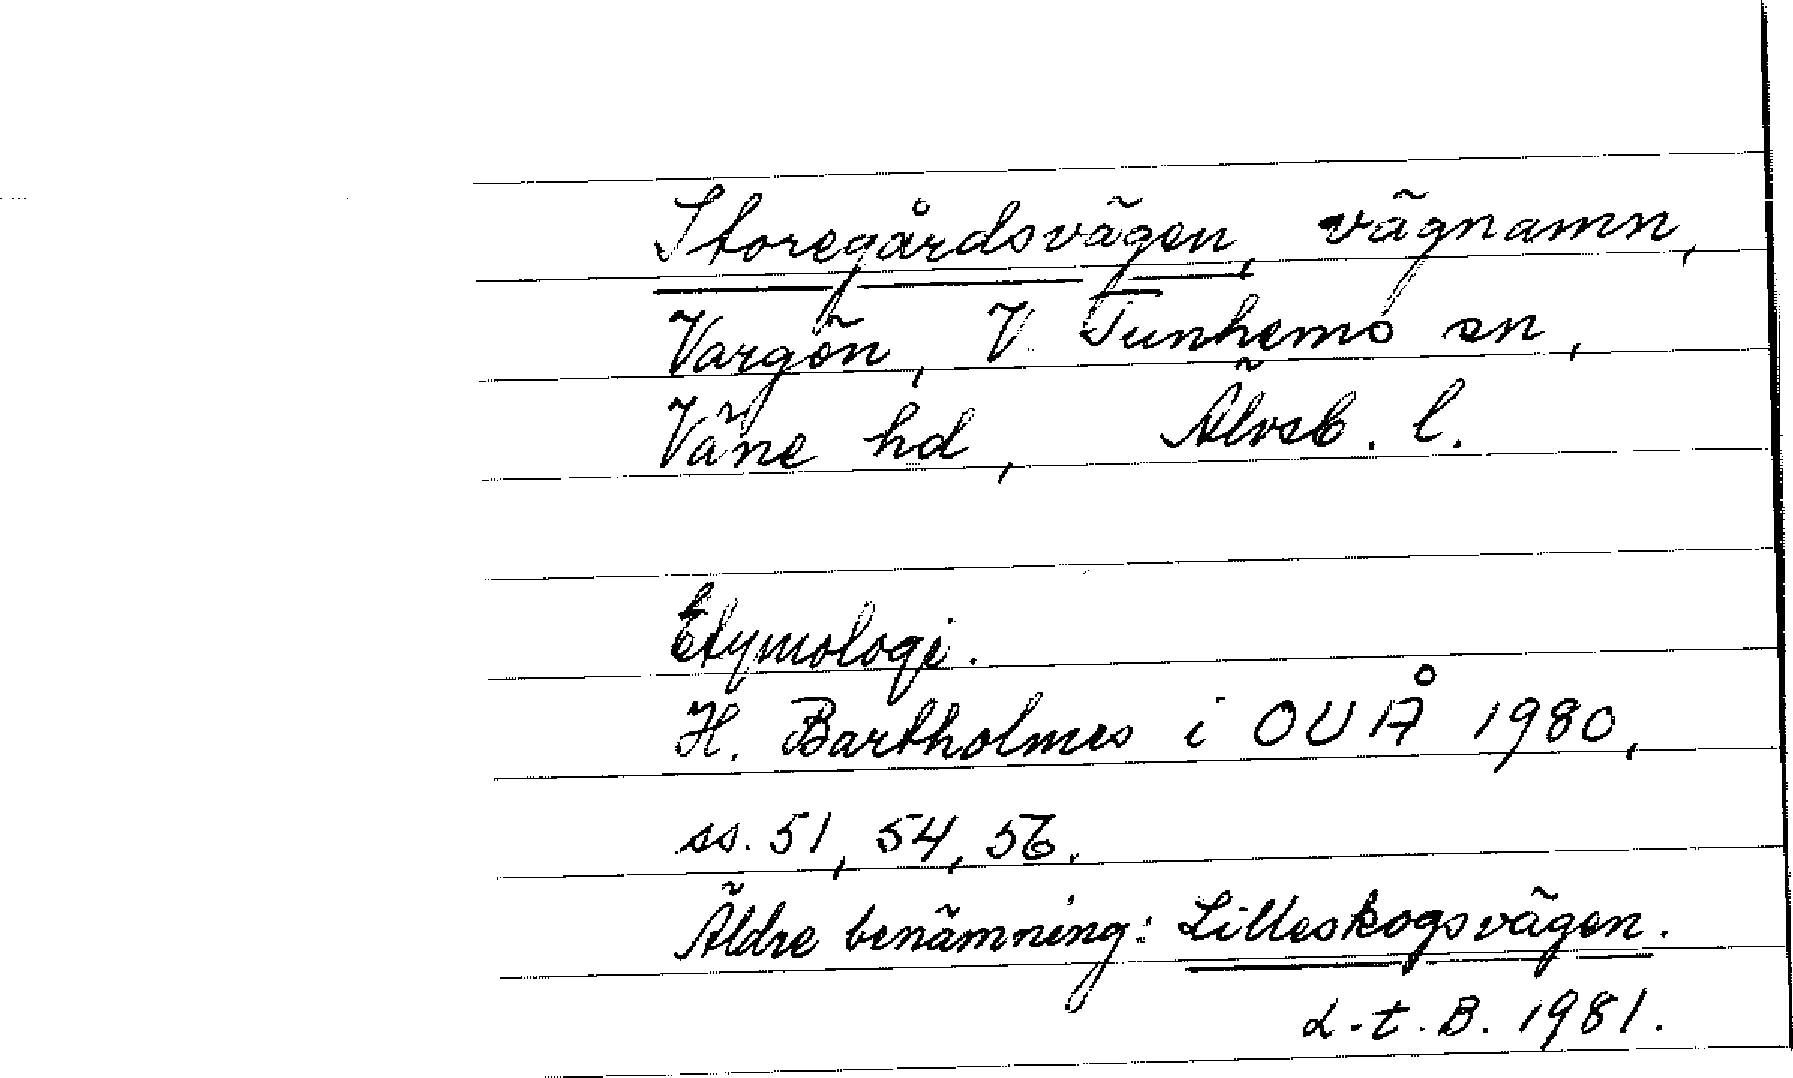 Storegårdsvägen, vägnamn,
Vargön, V. Tunhems sn,
Väne hd, Älvsb. l.
Etymologi.
H. Bartholmes i OUÅ 1980,
ss. 51, 54, 56.
Äldre benämning: Lilleskogsvägen.
L.t.B. 1981.